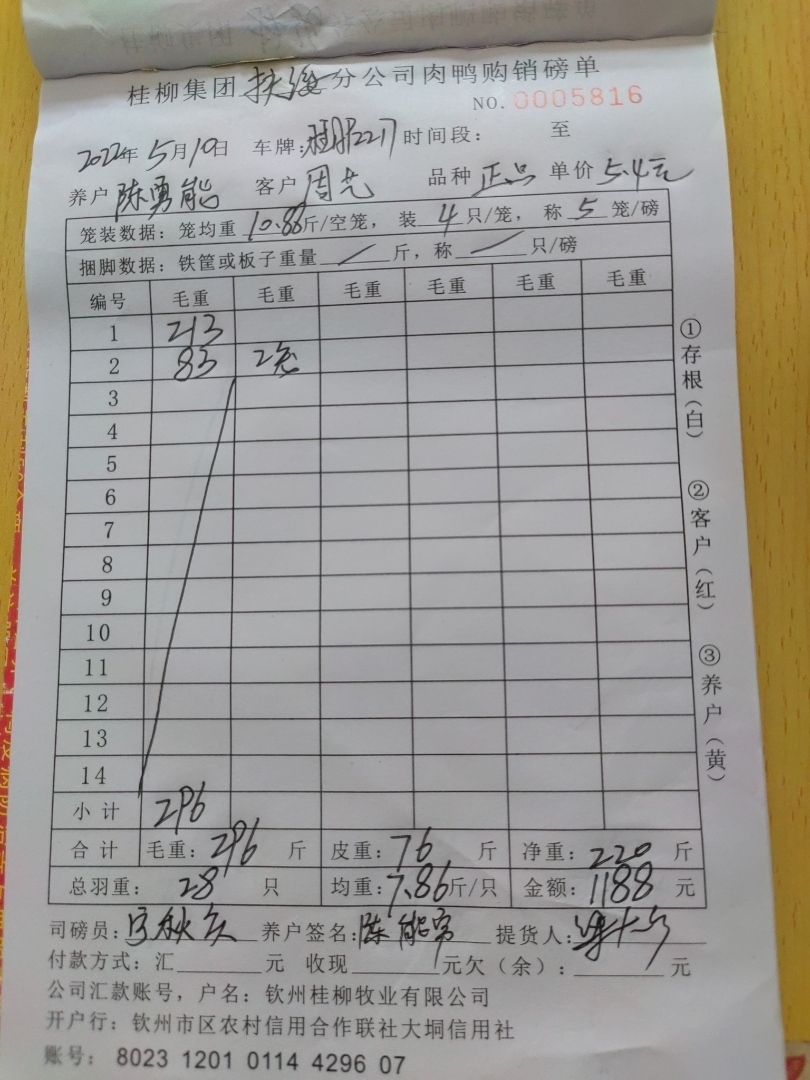 桂柳集团扶绥分公司肉鸭购销磅单
NO.0005816
2022年5月10日 车牌: 2217 时间段: 至
养户 陈勇能 客户 周艺 品种 正品 单价 5.4元
笼装数据: 笼均重 10.88斤/空笼, 装 4 只/笼, 称 5 笼/磅
捆脚数据: 铁筐或板子重量 / 斤, 称 / 只/磅
编号 毛重 毛重 毛重 毛重 毛重 毛重
1 213
2 83 2笼
3
4
5
6
7
8
9
10
11
12
13
14
小计 296
合计 毛重: 296 斤 皮重: 76 斤 净重: 220 斤
总羽重: 28 只 均重: 7.86斤/只 金额: 1188 元
司磅员: 养户签名: 陈能 提货人:
付款方式: 汇 元 收现 元欠(余): 元
公司汇款账号, 户名: 钦州桂柳牧业有限公司
开户行: 钦州市区农村信用合作联社大垌信用社
账号: 8023 1201 0114 4296 07
①存根(白)
②客户(红)
③养户(黄)